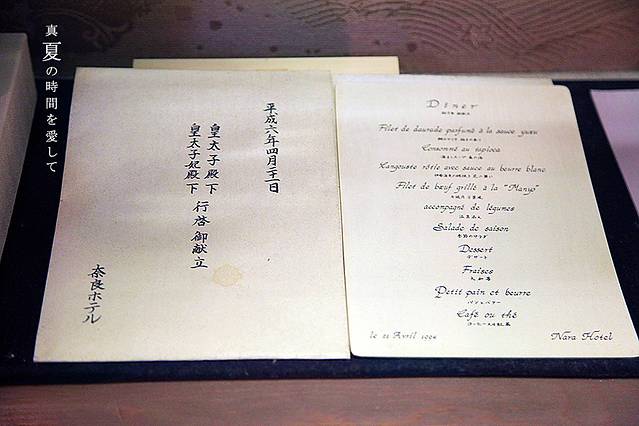 真夏の時間を愛して
平成六年四月二十一日
皇太子殿下
皇太子妃殿下
行啓御献立
奈良ホテル
Dîner
Filet de daurade parfumé à la sauce yuzu
Consommé au tapioca
Langouste rôtie avec sauce au beurre blanc
Filet de bœuf grillé à la "Manyo"
accompagné de légumes
温菜添え
Salade de saison
季節のサラダ
Dessert
デザート
Fraises
Petit pain et beurre
パンとバター
Café ou thé
コーヒー又は紅茶
le 21 Avril 1994
Nara Hotel